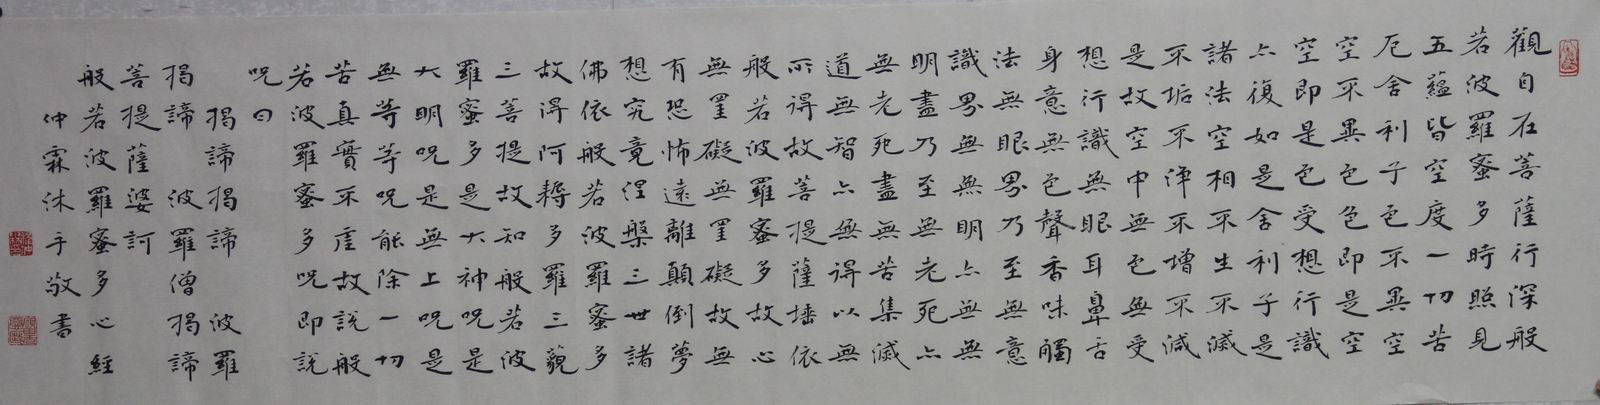 觀自在菩薩行深般
若波羅蜜多時照見
五蘊皆空度一切苦
厄舍利子色不異空
空不異色色即是空
空即是色受想行識
亦復如是舍利子是
諸法空相不生不滅
不垢不淨不增不減
是故空中無色無受
想行識無眼耳鼻舌
身意無色聲香味觸
法無眼界乃至無意
識界無無明亦無無
明盡乃至無老死亦
無老死盡無苦集滅
道無智亦無得以無
所得故菩提薩埵依
般若波羅蜜多故心
無罣礙無罣礙故無
有恐怖遠離顛倒夢
想究竟涅槃三世諸
佛依般若波羅蜜多
故得阿耨多羅三藐
三菩提故知般若波
羅蜜多是大神呪是
大明呪是無上呪是
無等等呪能除一切
苦真實不虛故說般
若波羅蜜多呪即說
呪曰
揭諦揭諦 波羅
揭諦 波羅僧揭諦
菩提薩婆訶
般若波羅蜜多心經
仲霖沐手敬書